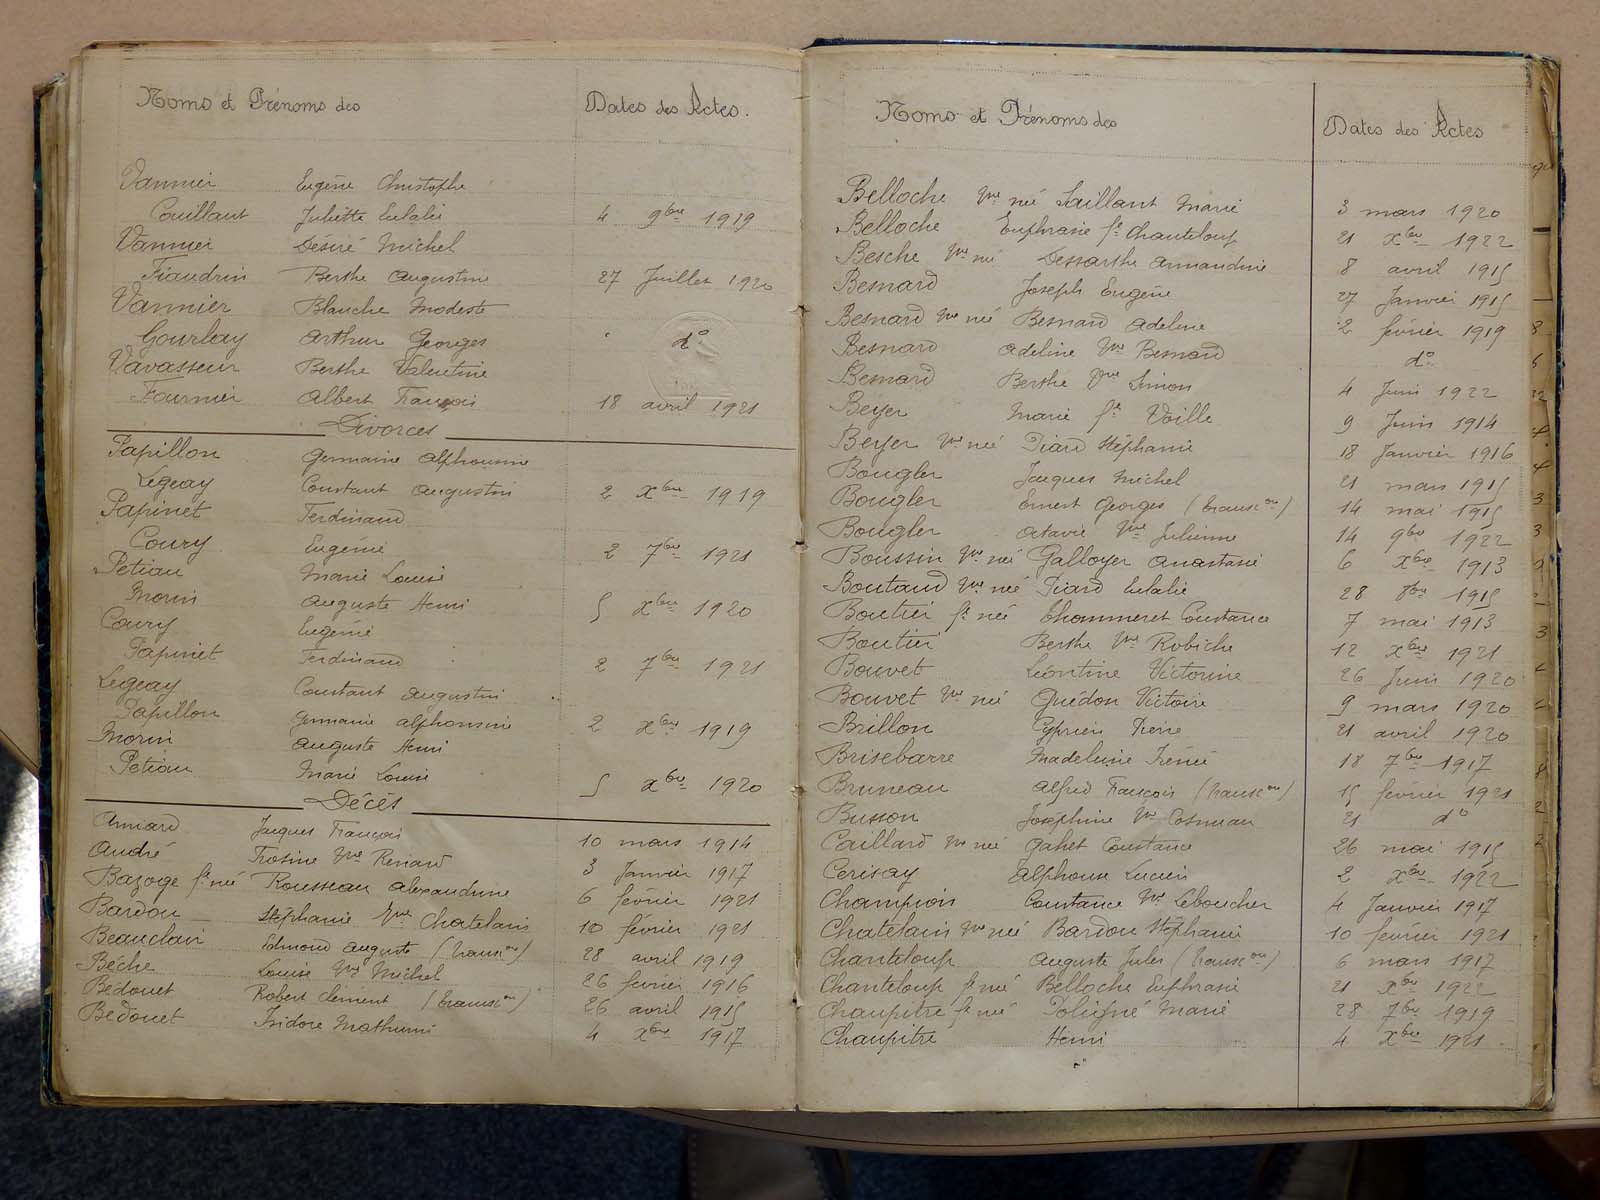 Noms et Prénoms des Dates des Actes.
Vannier Eugène Christophe
Couillaut Juliette Eulalie 4 9bre 1919
Vannier Désiré Michel
Fiaudrin Berthe Augustine 27 Juillet 1920
Vannier Blanche Modeste
Gourlay Arthur Georges do
Vavasseur Berthe Valentine
Fournier Albert François 18 avril 1921
Divorces
Papillon Germaine Alphonsine
Legeay Constant Augustin 2 Xbre 1919
Papinet Ferdinand
Coury Eugénie 2 7bre 1921
Petiau Marie Louise
Morin Auguste Henri 5 Xbre 1920
Coury Eugénie
Papinet Ferdinand 2 7bre 1921
Legeay Constant Augustin
Papillon Germaine Alphonsine 2 Xbre 1919
Morin Auguste Henri
Petiau Marie Louise 5 Xbre 1920
Décès
Amiard Jacques François 10 mars 1914
André Frosine Vve Renard 3 Janvier 1917
Bazoge fe née Rousseau Alexandrine 6 février 1921
Bardou Stéphanie Vve Chatelain 10 février 1921
Beauclair Edmond Auguste (transcon) 28 avril 1919
Bêche Louise Vve Michel 26 février 1916
Bedouet Robert Clément (transcon) 26 avril 1915
Bedouet Isidore Mathurin 4 Xbre 1917
Noms et Prénoms des Dates des Actes
Belloche Vve née Saillant Marie 3 mars 1920
Belloche Euphrasie fe Chanteloup 21 Xbre 1922
Besche Vve née Dessarthe Amandine 8 avril 1915
Besnard Joseph Eugène 27 Janvier 1915
Besnard Vve née Besnard Adeline 2 février 1919
Besnard Adeline Vve Besnard do
Besnard Berthe Vve Simon 4 Juin 1922
Beyer Marie fe Voille 9 Juin 1914
Beyer Vve née Piard Stéphanie 18 Janvier 1916
Bougler Jacques Michel 21 mars 1915
Bougler Ernest Georges (transcon) 14 mai 1915
Bougler Octavie Vve Julienne 14 9bre 1922
Boussin Vve née Galloyer Anastasie 6 Xbre 1913
Boutaud Vve née Piard Eulalie 28 8bre 1915
Boutier fe née Thommeret Constance 7 mai 1913
Boutier Berthe Vve Robiche 12 Xbre 1921
Bouvet Léontine Victorine 26 Juin 1920
Bouvet Vve née Guédon Victoire 9 mars 1920
Brillon Cyprien Pierre 21 avril 1920
Brisebarre Madeleine Irénée 18 7bre 1917
Bruneau Alfred François (transcon) 15 février 1921
Busson Joséphine Vve Cosnuau 21 do
Caillard Vve née Gahet Constance 26 mai 1915
Cerisay Alphonse Lucien 2 Xbre 1922
Champion Constance Vve Leboucher 4 Janvier 1917
Chatelain Vve née Bardou Stéphanie 10 février 1921
Chanteloup Auguste Jules (transcon) 6 mars 1917
Chanteloup fe née Belloche Euphrasie 21 Xbre 1922
Chaupitre fe née Poligné Marie 28 7bre 1919
Chaupitre Henri 4 Xbre 1921